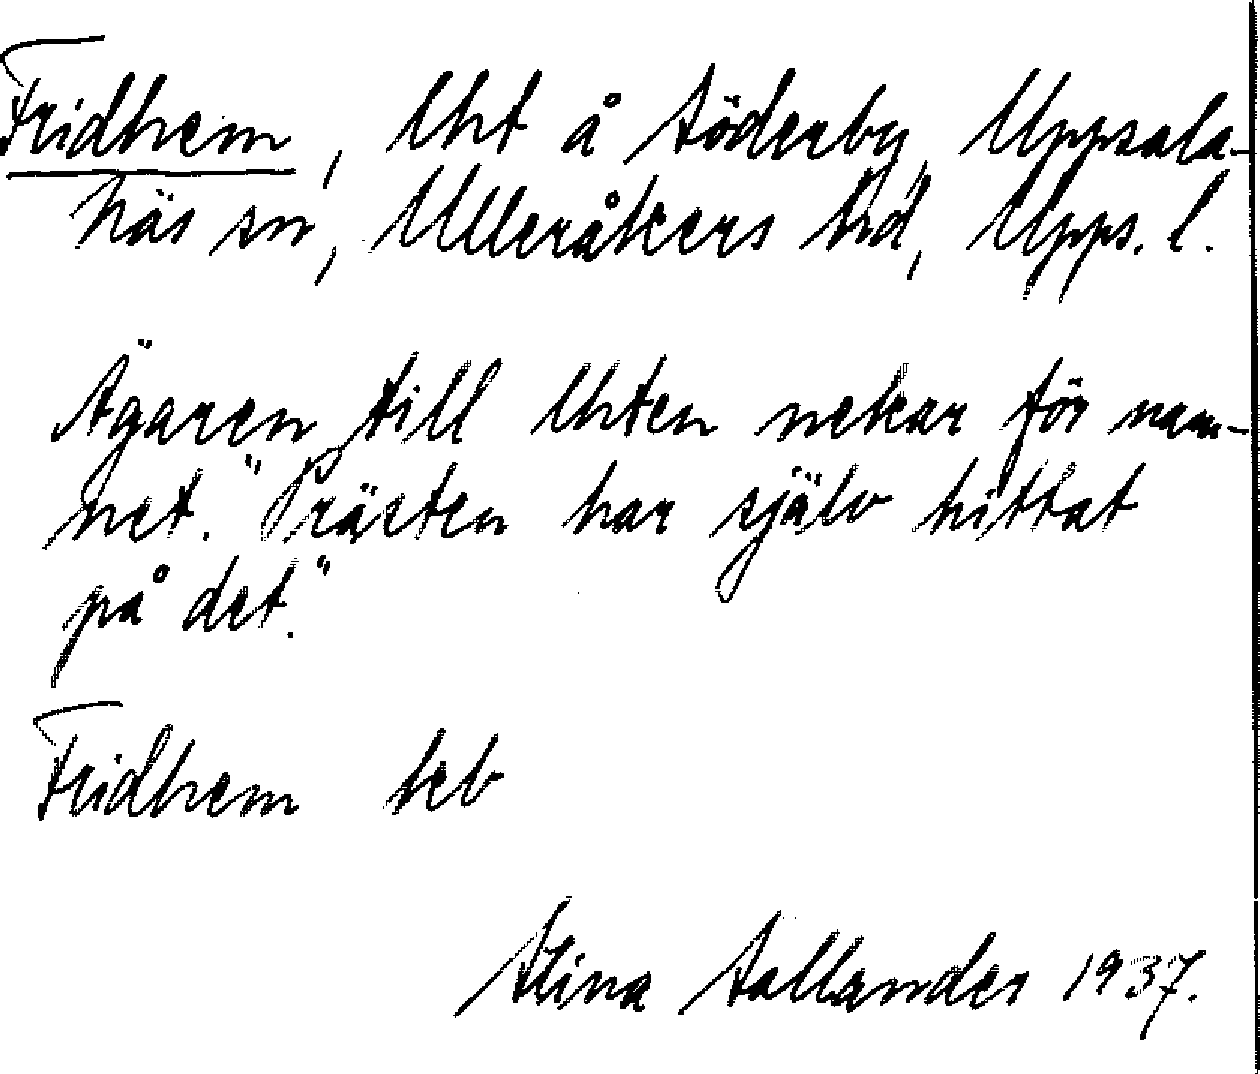 Fridhem, lht å Söderby, Uppsala-
näs sn, Ulleråkers hd, Upps. l.
Ägaren till lhten nekar för nam-
net. "Prästen har själv hittat
på det."
Fridhem  keb
Stina Sallander 1937.